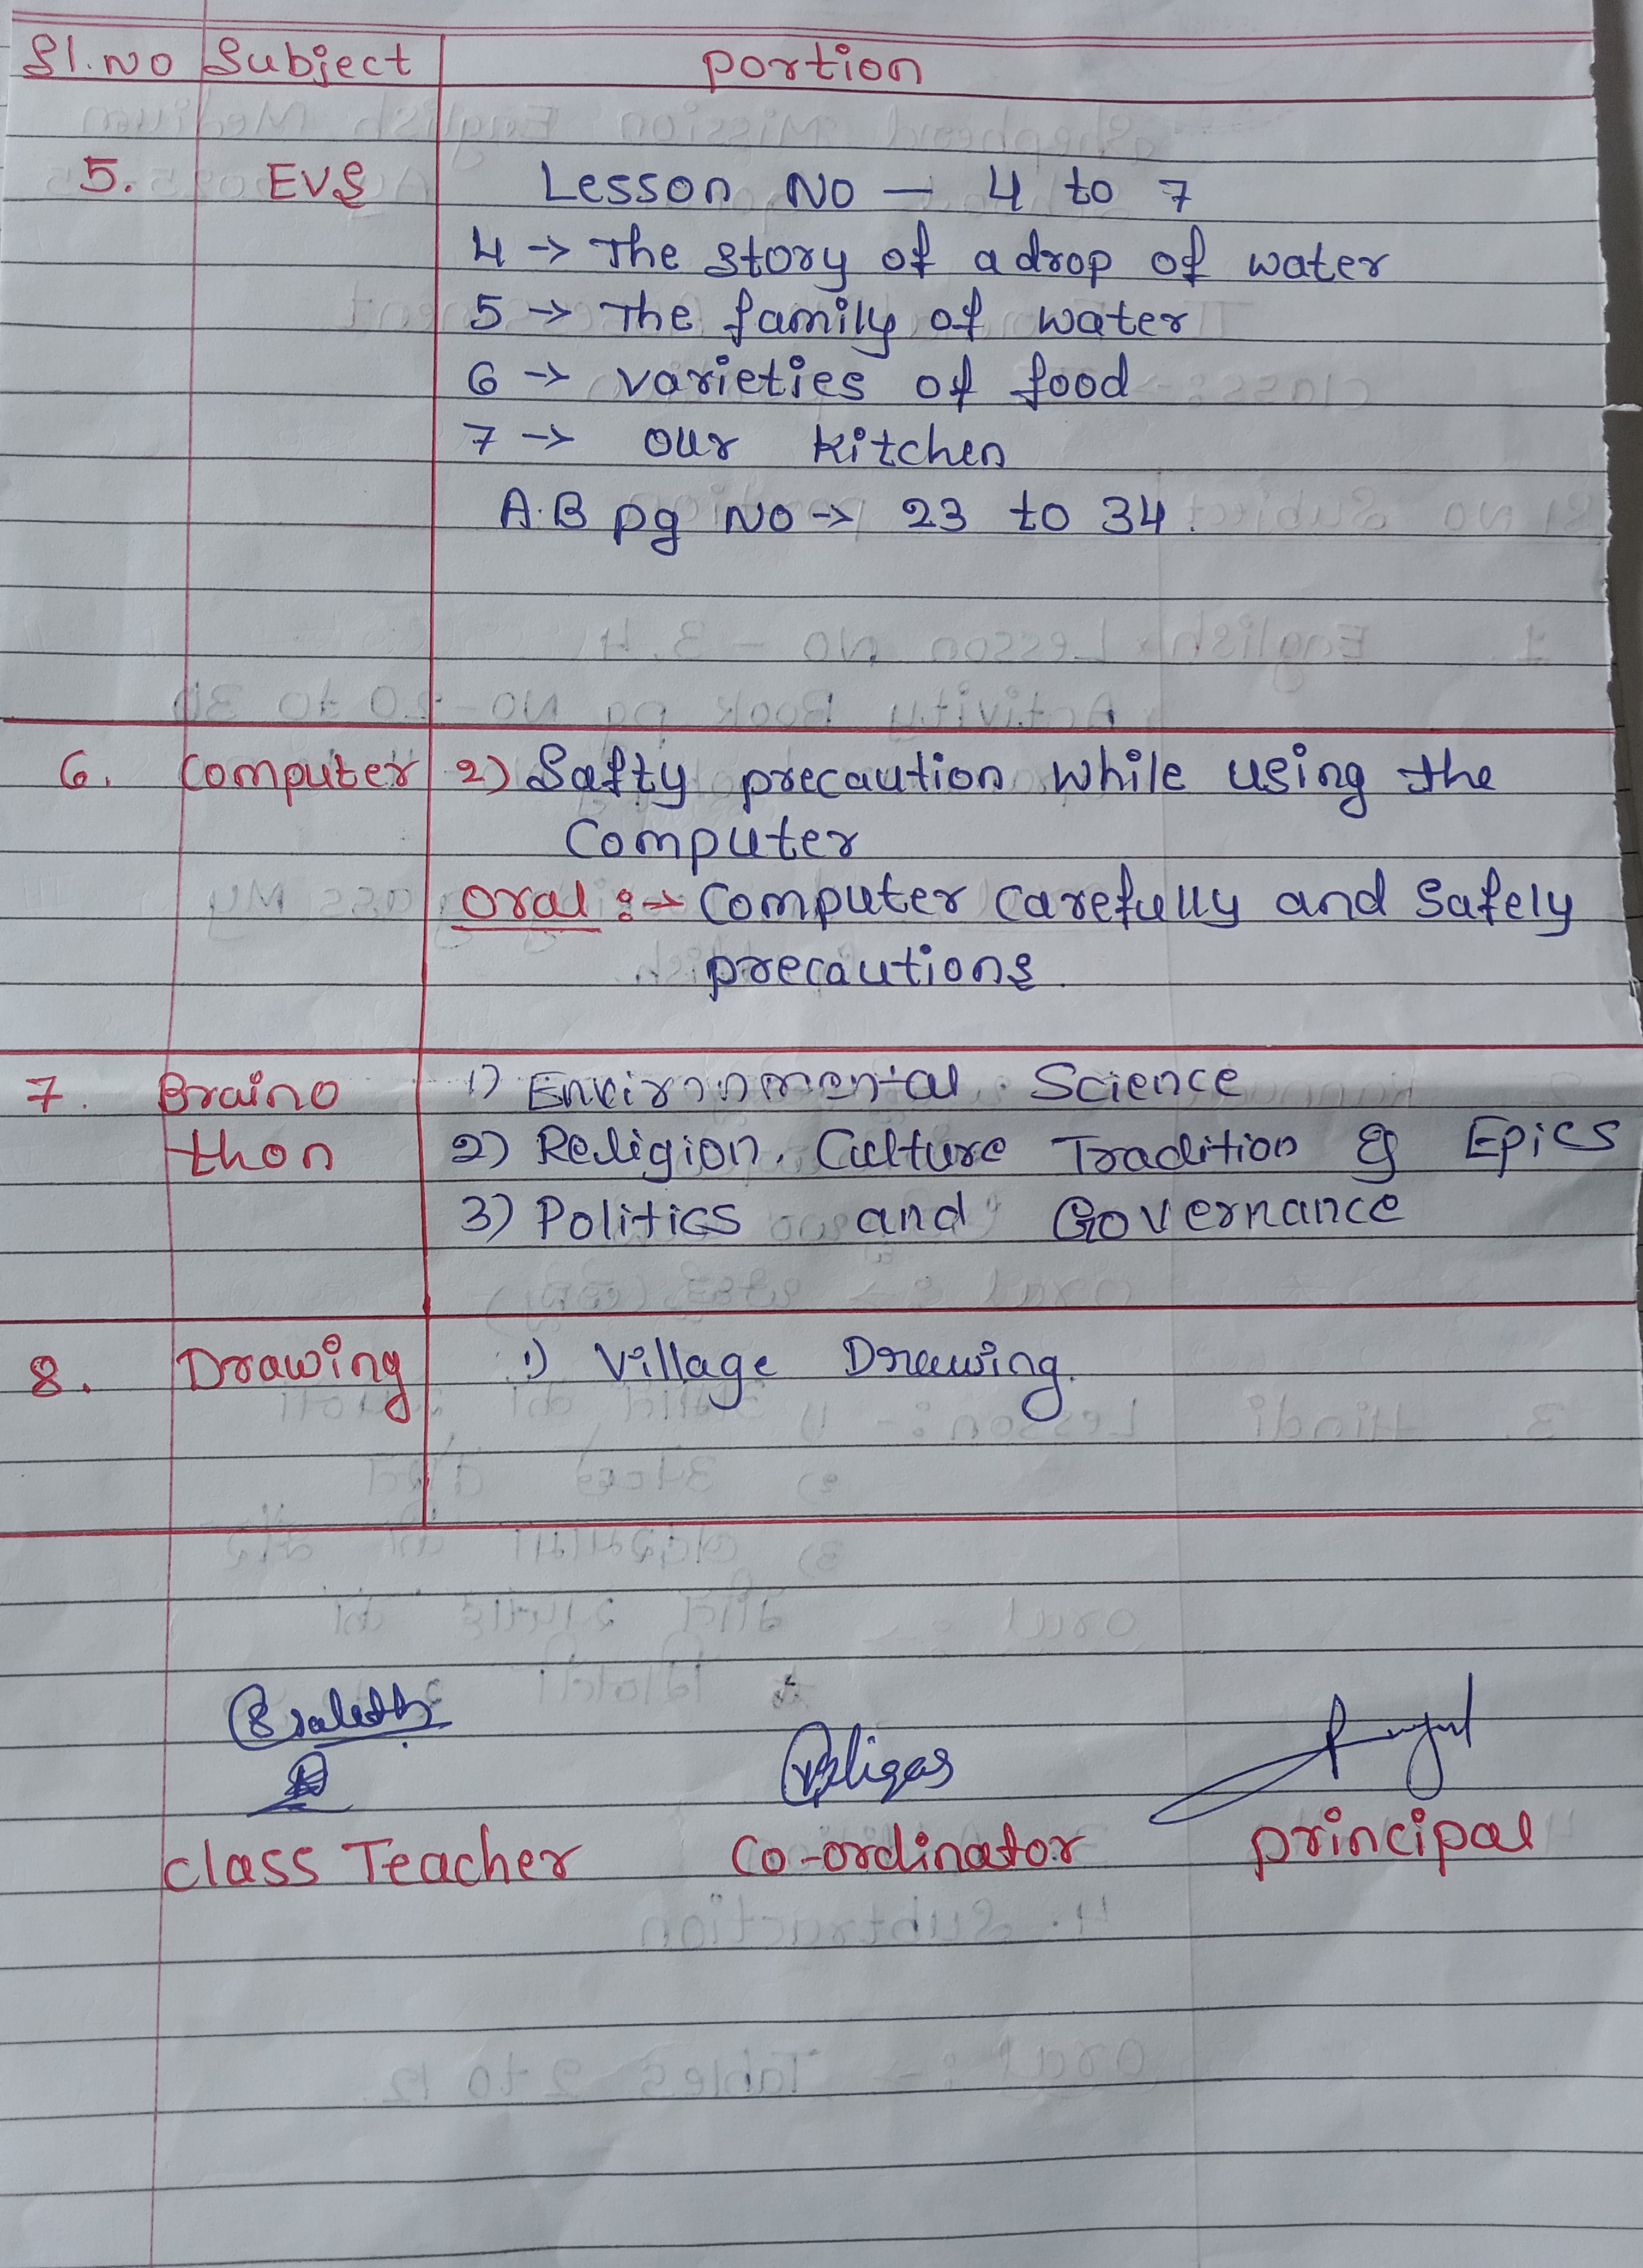 Sl.No Subject portion
5. EVS Lesson No – 4 to 7
4 → The story of a drop of water
5 → The family of water
6 → varieties of food
7 → our kitchen
A.B pg No → 23 to 34.
6. Computer 2) Safty precaution while using the
Computer
Oral :→ Computer carefully and safely
precautions.
7. Braino 1) Environmental Science
thon 2) Religion, Culture Tradition & Epics
3) Politics and Governance
8. Drawing 1) Village Drawing.
class Teacher Co-ordinator principal